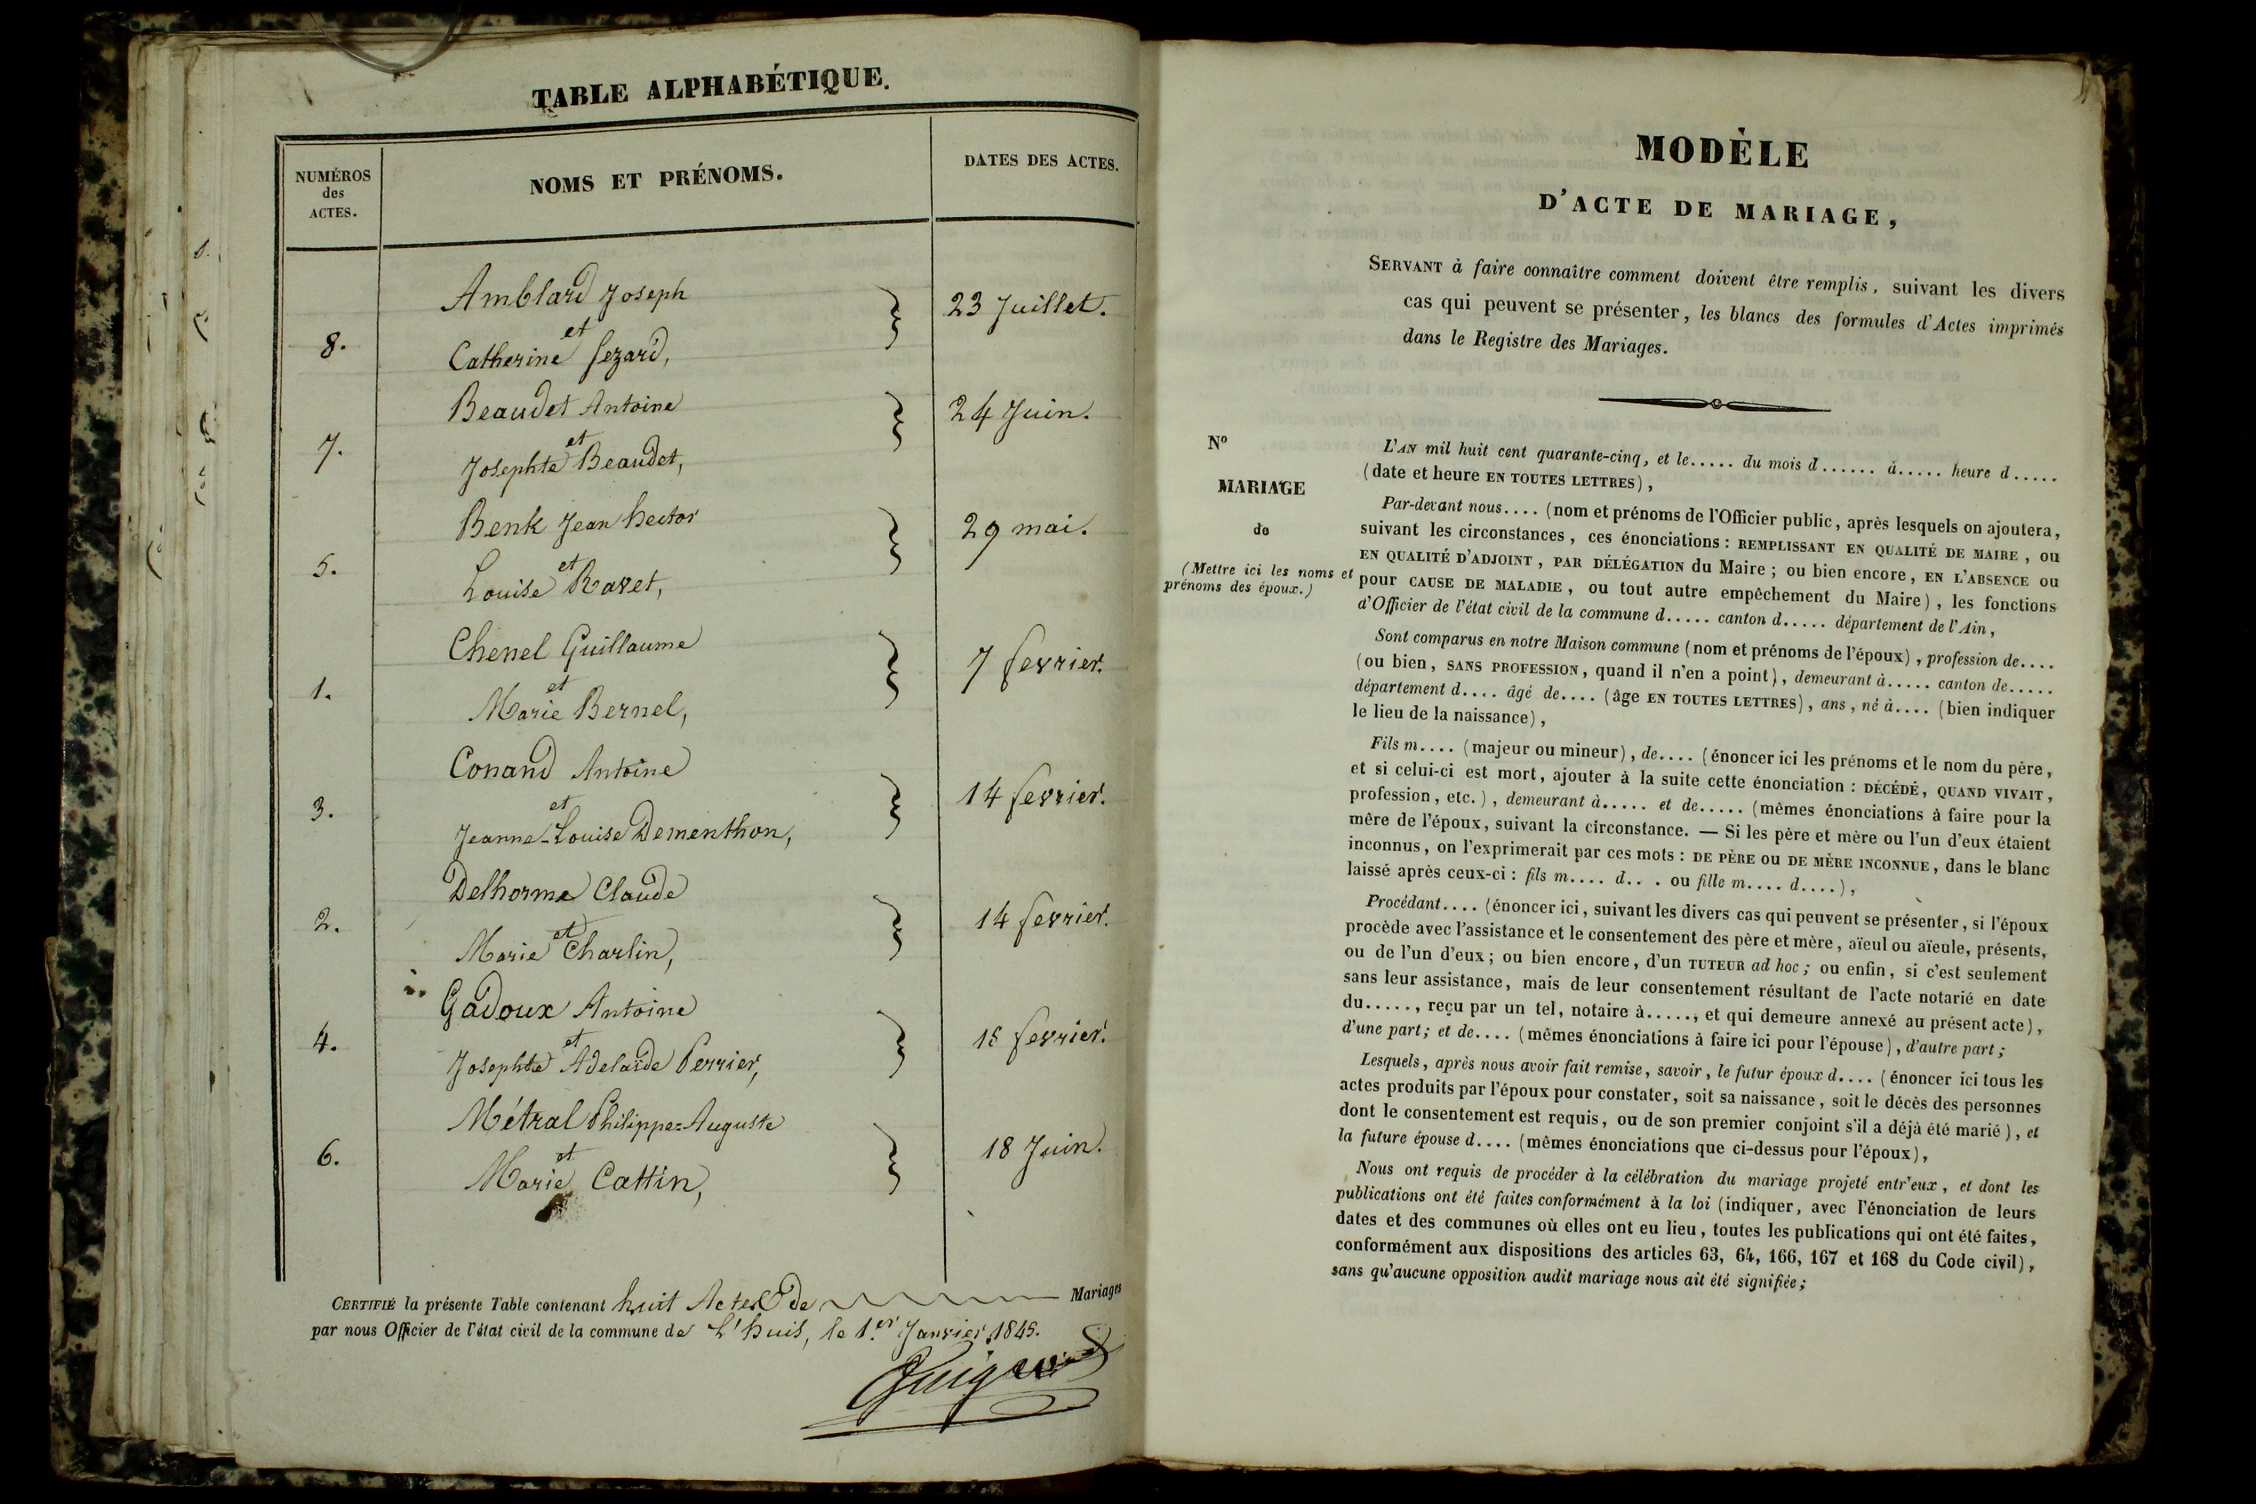 TABLE ALPHABÉTIQUE.
NUMÉROS
des
ACTES.
NOMS ET PRÉNOMS.
DATES DES ACTES.
Amblard Joseph
et
8. Catherine Sezard, 23 Juillet.
Beaudet Antoine
et
7. Josephte Beaudet, 24 Juin.
Benk Jean hector
et
5. Louise Ravet, 29 mai.
Chenel Guillaume
et
1. Marie Bernel, 7 fevrier.
Conand Antoine
et
3. Jeanne-Louise Dementhon, 14 fevrier.
Delhorme Claude
et
2. Marie Charlin, 14 fevrier.
Gadoux Antoine
et
4. Josephte Adelaïde Perrier, 15 fevrier.
Métral Philippe=Auguste
et
6. Marie Cattin, 18 Juin.
CERTIFIÉ la présente Table contenant huit Actes de Mariages
par nous Officier de l'état civil de la commune de L'huis, le 1.er Janvier 1845.
MODÈLE
D'ACTE DE MARIAGE,
SERVANT à faire connaître comment doivent être remplis, suivant les divers
cas qui peuvent se présenter, les blancs des formules d'Actes imprimés
dans le Registre des Mariages.
No
MARIAGE
de
(Mettre ici les noms et
prénoms des époux.)
L'AN mil huit cent quarante-cinq, et le..... du mois d...... à..... heure d.....
(date et heure EN TOUTES LETTRES),
Par-devant nous.... (nom et prénoms de l'Officier public, après lesquels on ajoutera,
suivant les circonstances, ces énonciations : REMPLISSANT EN QUALITÉ DE MAIRE, ou
EN QUALITÉ D'ADJOINT, PAR DÉLÉGATION du Maire; ou bien encore, EN L'ABSENCE ou
pour CAUSE DE MALADIE, ou tout autre empêchement du Maire), les fonctions
d'Officier de l'état civil de la commune d..... canton d..... département de l'Ain,
Sont comparus en notre Maison commune (nom et prénoms de l'époux), profession de....
(ou bien, SANS PROFESSION, quand il n'en a point), demeurant à..... canton de.....
département d.... âgé de.... (âge EN TOUTES LETTRES), ans, né à.... (bien indiquer
le lieu de la naissance),
Fils m.... (majeur ou mineur), de.... (énoncer ici les prénoms et le nom du père,
et si celui-ci est mort, ajouter à la suite cette énonciation : DÉCÉDÉ, QUAND VIVAIT,
profession, etc.), demeurant à..... et de..... (mêmes énonciations à faire pour la
mère de l'époux, suivant la circonstance. — Si les père et mère ou l'un d'eux étaient
inconnus, on l'exprimerait par ces mots : DE PÈRE OU DE MÈRE INCONNUE, dans le blanc
laissé après ceux-ci : fils m.... d.. . ou fille m.... d....),
Procédant.... (énoncer ici, suivant les divers cas qui peuvent se présenter, si l'époux
procède avec l'assistance et le consentement des père et mère, aïeul ou aïeule, présents,
ou de l'un d'eux; ou bien encore, d'un TUTEUR ad hoc; ou enfin, si c'est seulement
sans leur assistance, mais de leur consentement résultant de l'acte notarié en date
du....., reçu par un tel, notaire à....., et qui demeure annexé au présent acte),
d'une part; et de.... (mêmes énonciations à faire ici pour l'épouse), d'autre part;
Lesquels, après nous avoir fait remise, savoir, le futur époux d.... (énoncer ici tous les
actes produits par l'époux pour constater, soit sa naissance, soit le décès des personnes
dont le consentement est requis, ou de son premier conjoint s'il a déjà été marié), et
la future épouse d.... (mêmes énonciations que ci-dessus pour l'époux),
Nous ont requis de procéder à la célébration du mariage projeté entr'eux, et dont les
publications ont été faites conformément à la loi (indiquer, avec l'énonciation de leurs
dates et des communes où elles ont eu lieu, toutes les publications qui ont été faites,
conformément aux dispositions des articles 63, 64, 166, 167 et 168 du Code civil),
sans qu'aucune opposition audit mariage nous ait été signifiée;